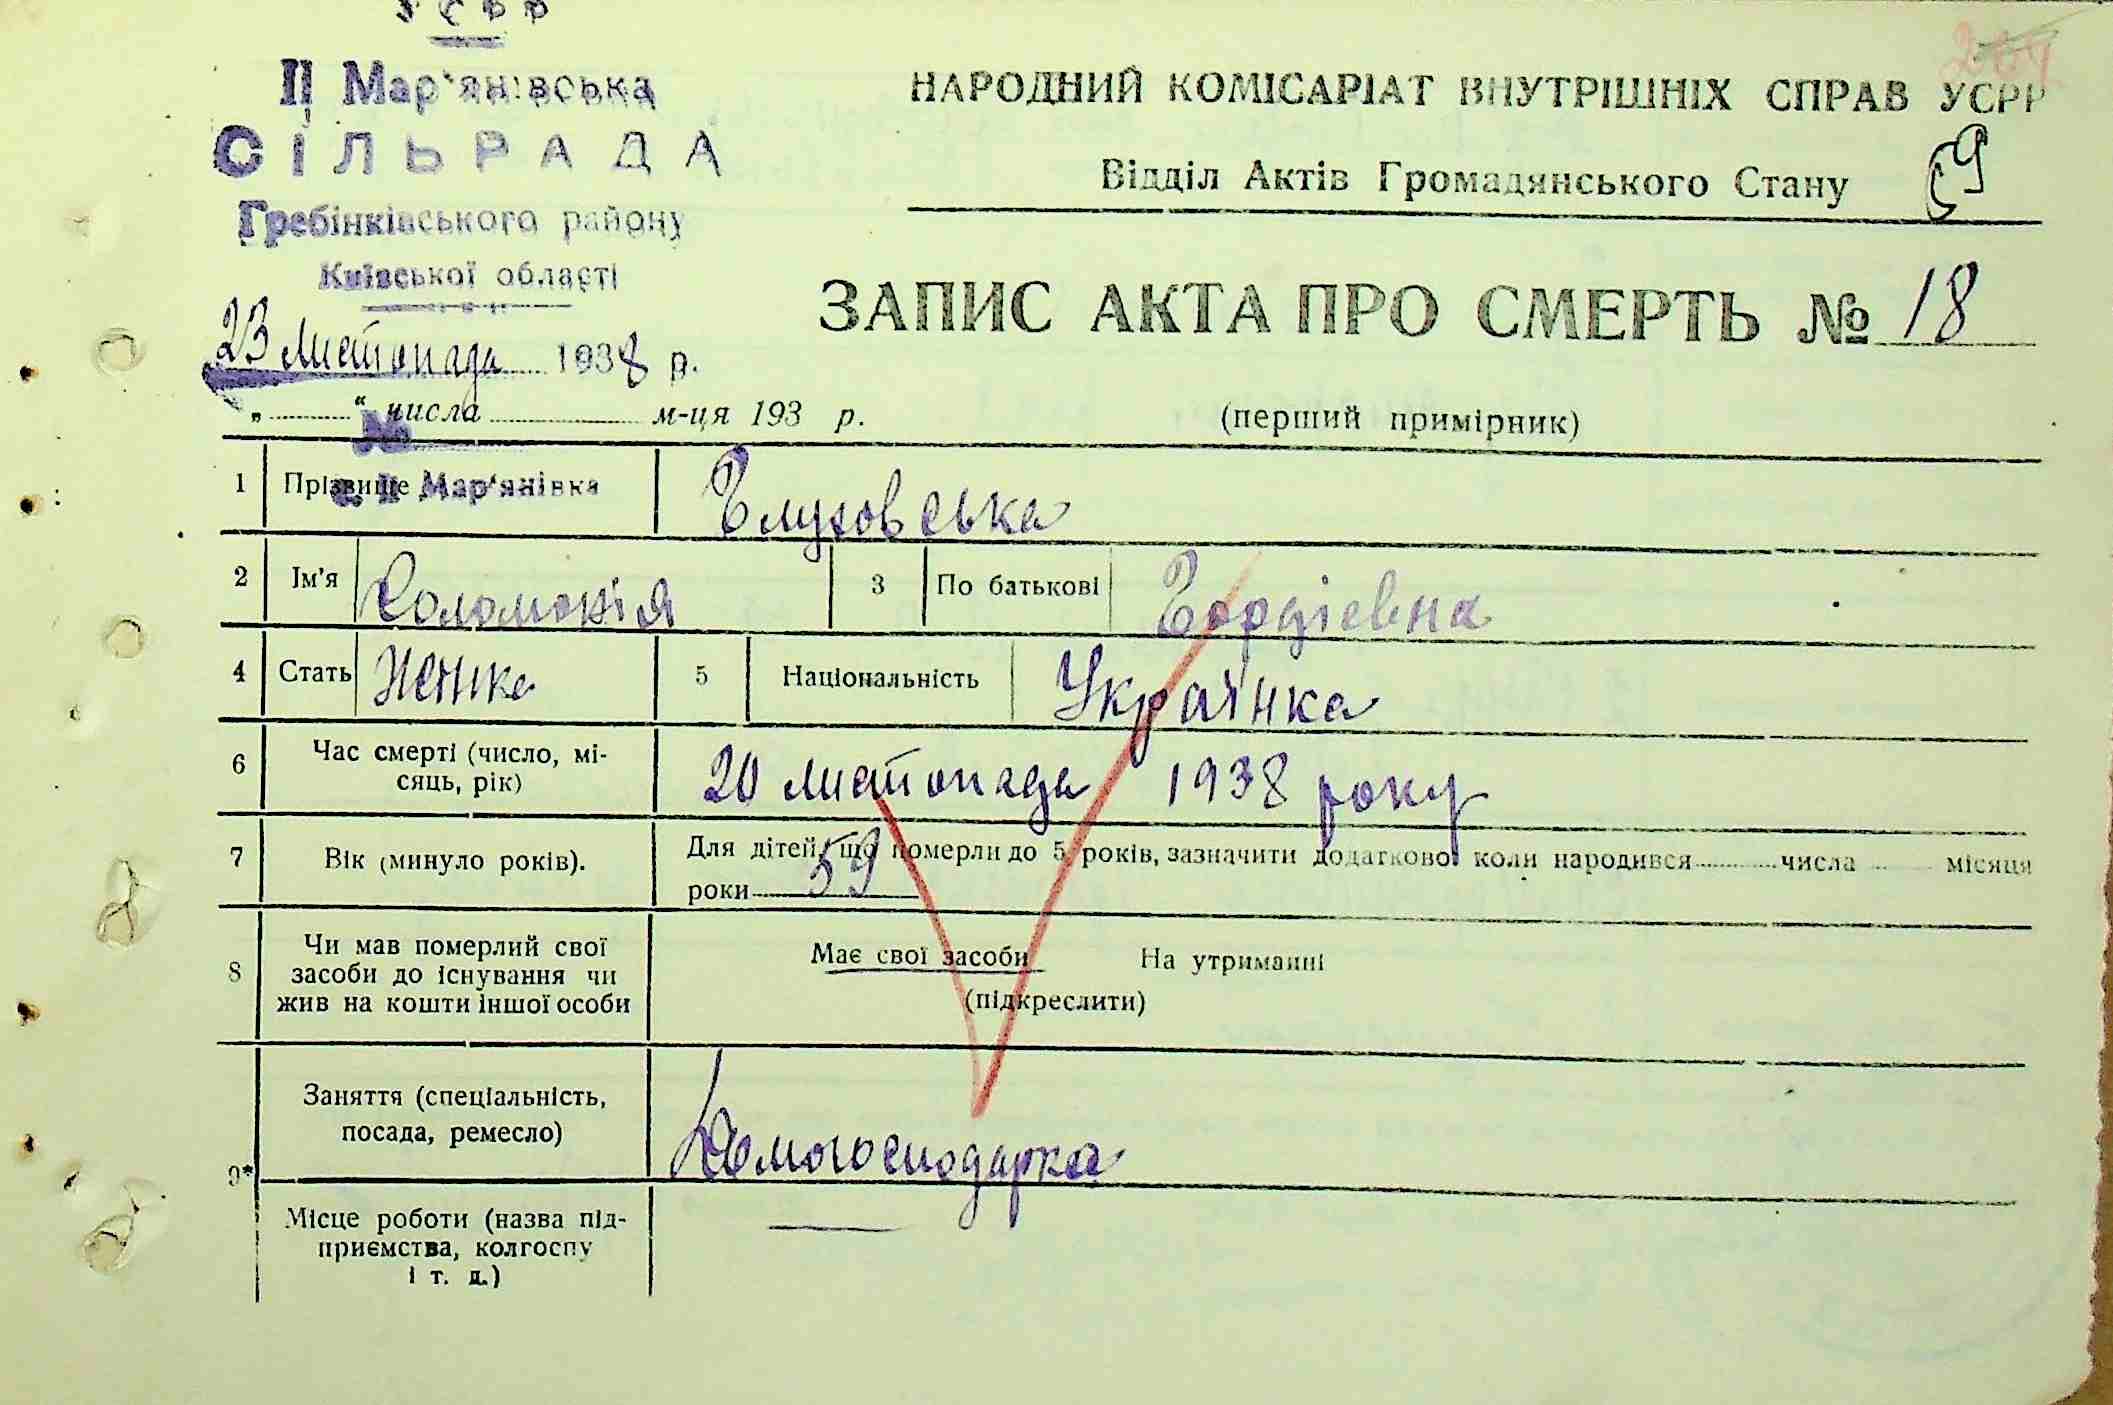 УСРР
ІІ Мар'янівська
СІЛЬРАДА
Гребінківського району
Київської області
23 листопада 1938 р.
№
с. ІІ Мар'янівка
НАРОДНИЙ КОМІСАРІАТ ВНУТРІШНІХ СПРАВ УСРР
Відділ Актів Громадянського Стану
59
ЗАПИС АКТА ПРО СМЕРТЬ № 18
„ “ числа м-ця 193 р. (перший примірник)
1 Прізвище Глуховська
2 Ім'я Соломонія 3 По батькові Гордієвна
4 Стать Жінка 5 Національність Українка
6 Час смерті (число, мі-
сяць, рік) 20 листопада 1938 року
7 Вік (минуло років). Для дітей, що померли до 5 років, зазначити додатково: коли народився числа місяця
роки 59
8 Чи мав померлий свої
засоби до існування чи
жив на кошти іншої особи
Має свої засоби На утриманні
(підкреслити)
9* Заняття (спеціальність,
посада, ремесло) Домогосподарка
Місце роботи (назва під-
приємства, колгоспу
і т. д.) —